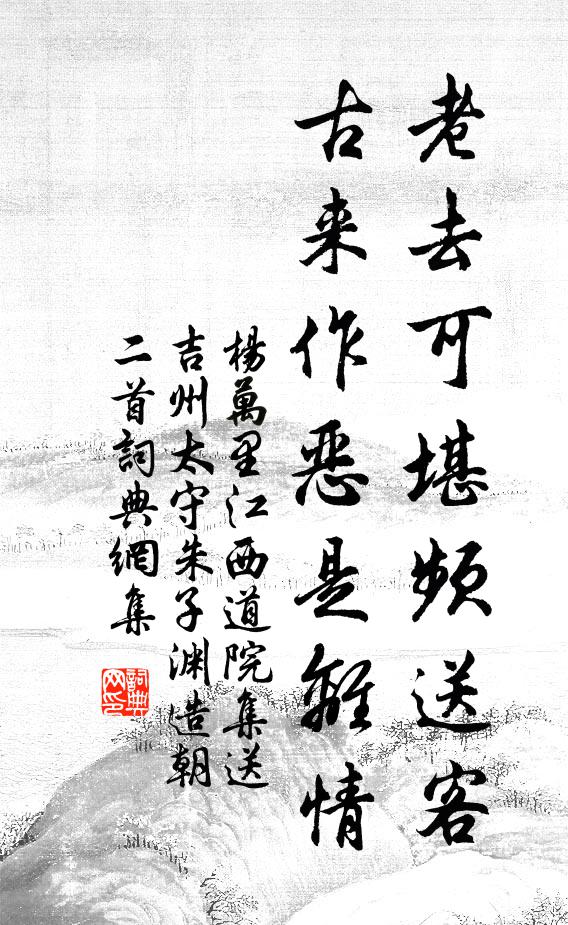 老去可堪頻送客
古来作恶是離情
楊萬里江西道院集送
吉州太守朱子渊造朝
二首詞典網集
詞典網印